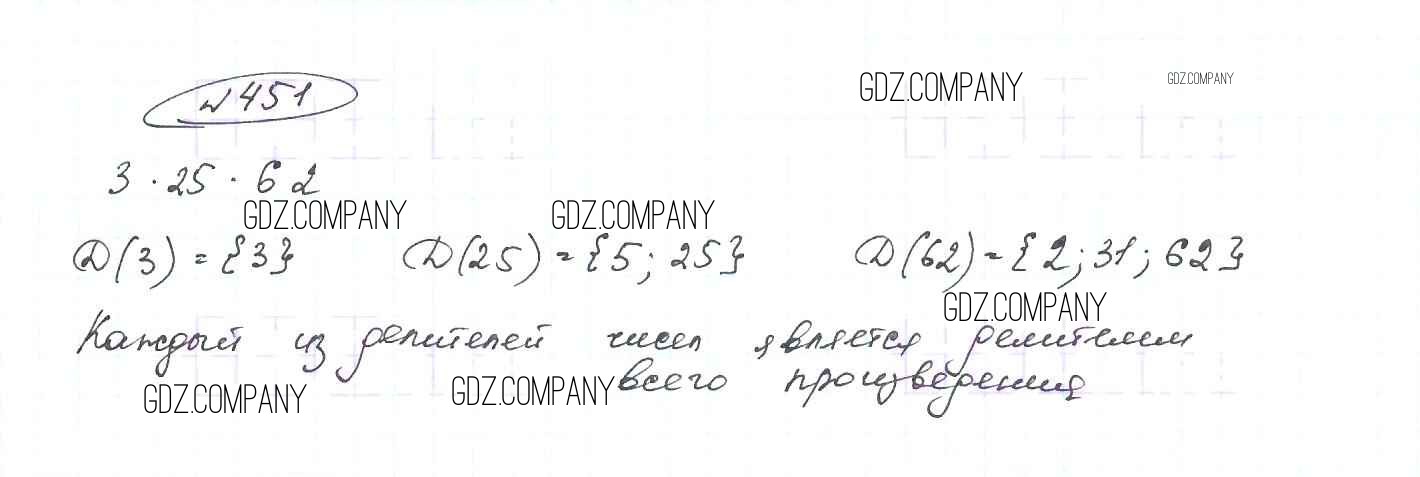 № 451
GDZ.COMPANY GDZ.COMPANY
3 · 25 · 62
GDZ.COMPANY GDZ.COMPANY
D(3) = {3} D(25) = {5; 25} D(62) = {2; 31; 62}
GDZ.COMPANY
Каждый из делителей чисел является делителем
всего произведения
GDZ.COMPANY GDZ.COMPANY